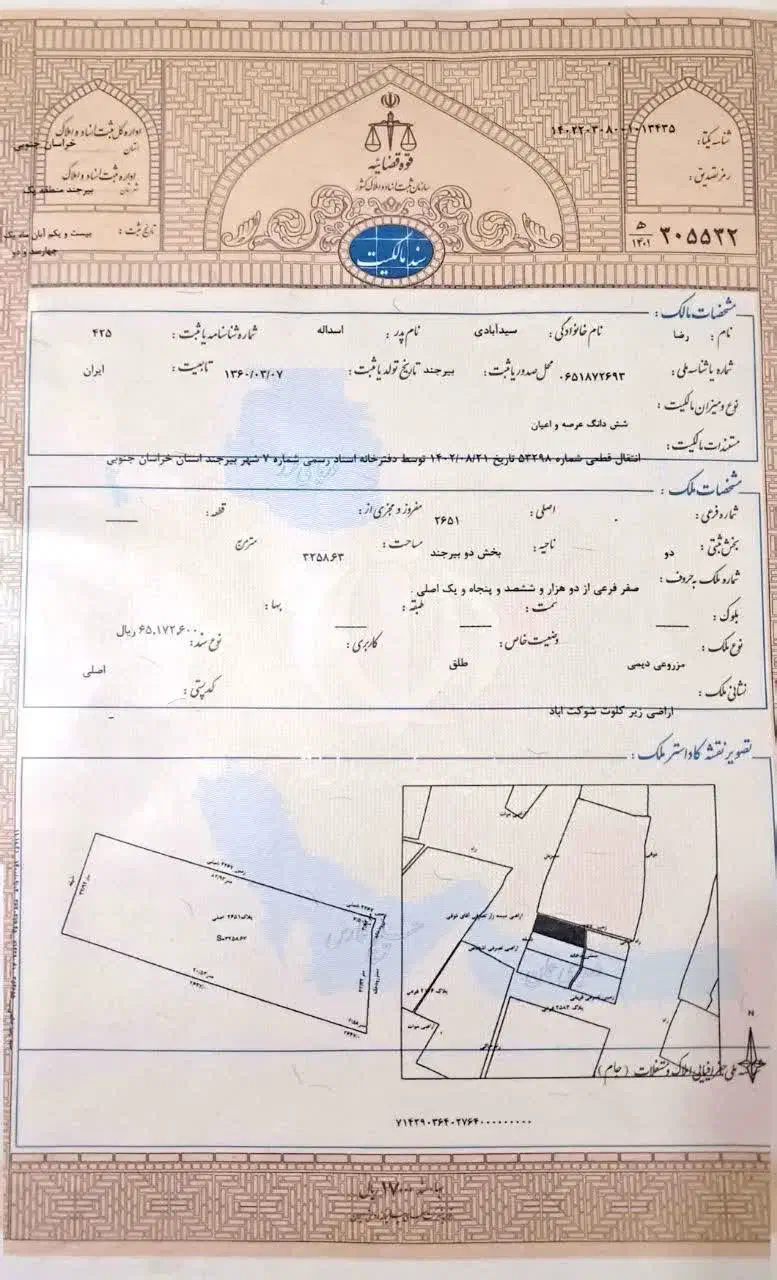 اداره کل ثبت اسناد و املاک
استان
خراسان جنوبی
اداره ثبت اسناد و املاک
شهرستان
بیرجند منطقه یک
تاریخ ثبت :
بیست و یکم آبان ماه یک
چهارصد و دو
قوه قضائیه
سازمان ثبت اسناد و املاک کشور
سند مالکیت
شناسه یکتا:
۱۴۰۲۲۰۳۰۸۰۰۱۰۱۳۴۳۵
رمز تصدیق:
۳۰۵۵۳۲ ۵/۱۴۰۱
مشخصات مالک :
نام : رضا نام خانوادگی : سیدآبادی نام پدر : اسداله شماره شناسنامه یا ثبت : ۴۲۵
شماره یا شناسه ملی : ۰۶۵۱۸۷۲۶۹۳ محل صدور یا ثبت : بیرجند تاریخ تولد یا ثبت : ۱۳۶۰/۰۳/۰۷ تابعیت : ایران
نوع و میزان مالکیت :
شش دانگ عرصه و اعیان
مستندات مالکیت :
انتقال قطعی شماره ۵۳۲۹۸ تاریخ ۱۴۰۲/۰۸/۲۱ توسط دفترخانه اسناد رسمی شماره ۷ شهر بیرجند استان خراسان جنوبی
مشخصات ملک :
شماره فرعی : ۰ اصلی : ۲۶۵۱ مفروز و مجزی از : قطعه :
بخش ثبتی : دو ناحیه : بخش دو بیرجند مساحت : ۳۲۵۸.۶۳ مترمربع
شماره ملک به حروف :
صفر فرعی از دو هزار و ششصد و پنجاه و یک اصلی
بلوک : سمت : طبقه : بها : ۶۵,۱۷۲,۶۰۰ ریال
نوع ملک : مزروعی دیمی وضعیت خاص : طلق کاربری : نوع سند : اصلی
نشانی ملک :
اراضی زیر کلوت شوکت اباد
کدپستی : -
تصویر نقشه کاداستر ملک :
پلاک ۲۶۵۱ اصلی
S=۳۲۵۸.۶۳
N
شناسه ملی جغرافیایی املاک و مستغلات (جام)
۷۱۴۲۹۰۳۶۴۰۲۷۶۴۰۰۰۰۰۰۰۰۰